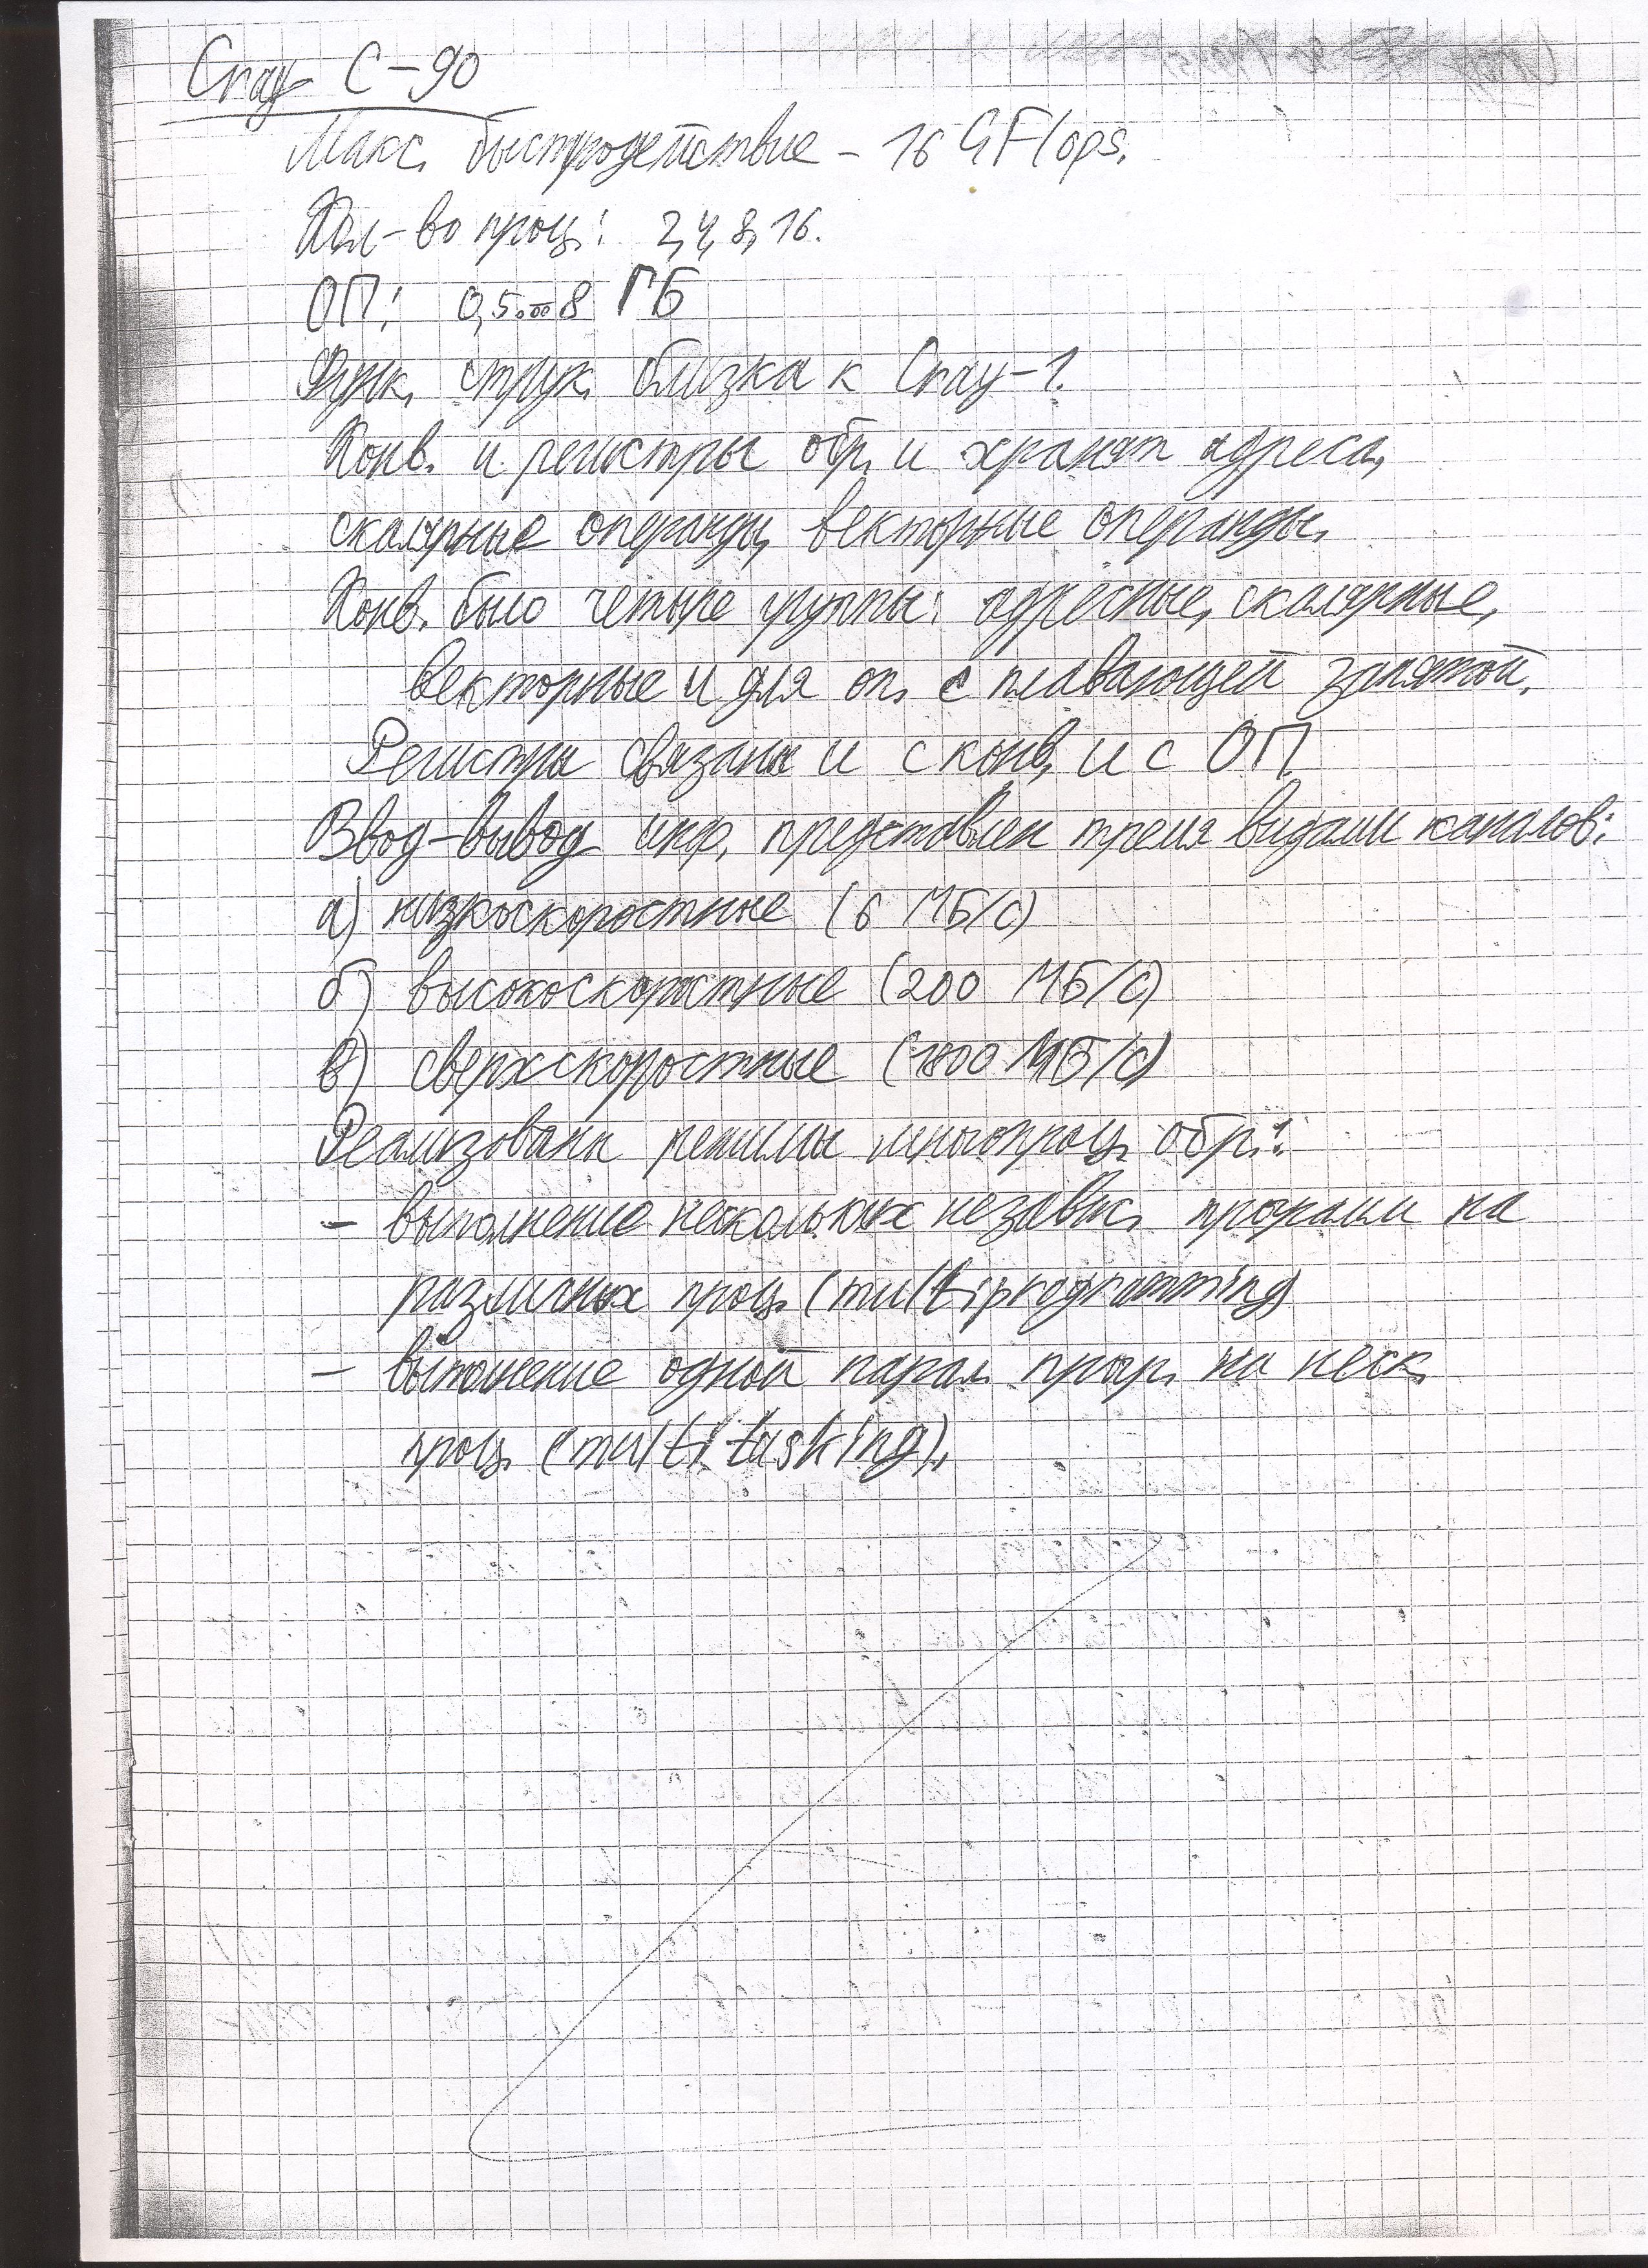 Cray C-90
Макс. быстродействие - 16 GFlops.
Кол-во проц.: 2, 4, 8, 16.
ОП: 0,5...8 ГБ
Функ. струк. близка к Cray-1.
Конв. и регистры обр. и хранят адреса,
скалярные операнды, векторные операнды.
Конв. было четыре группы: адресные, скалярные,
векторные и для оп. с плавающей запятой.
Регистры связаны и с конв, и с ОП.
Ввод-вывод инф. представлен тремя видами каналов:
а) низкоскоростные (6 МБ/с)
б) высокоскоростные (200 МБ/с)
в) сверхскоростные (1800 МБ/с)
Реализованы режимы многопроц. обр.:
- выполнение нескольких независ. программ на
различных проц. (multiprogramming)
- выполнение одной парал. прогр. на неск.
проц. (multitasking).